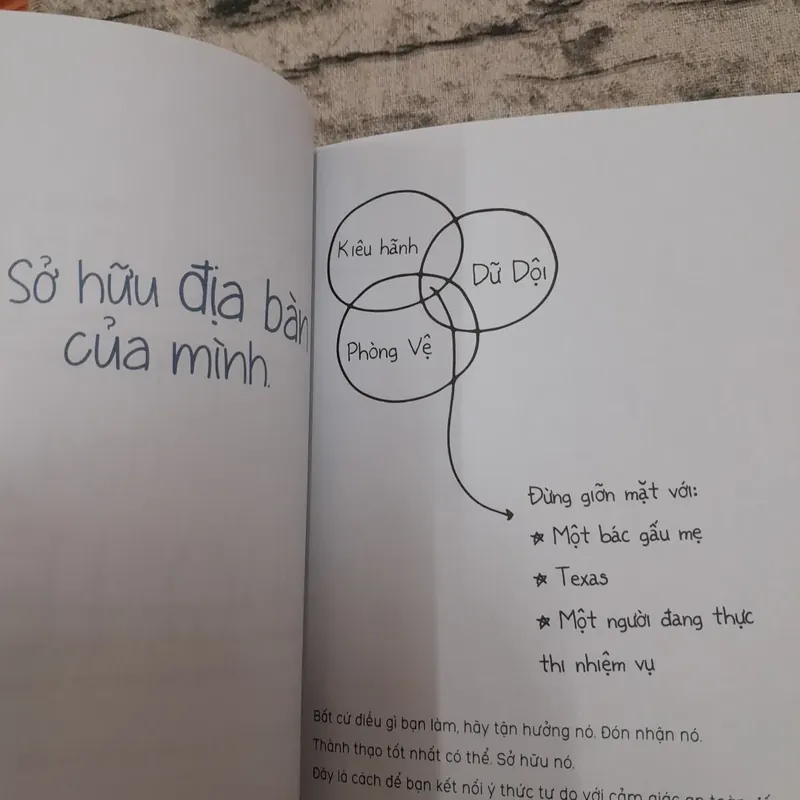 Sở hữu địa bàn
của mình.
Kiêu hãnh
Dữ Dội
Phòng Vệ
Đừng giỡn mặt với:
★ Một bác gấu mẹ
★ Texas
★ Một người đang thực
thi nhiệm vụ
Bất cứ điều gì bạn làm, hãy tận hưởng nó. Đón nhận nó.
Thành thạo tốt nhất có thể. Sở hữu nó.
Đây là cách để bạn kết nối ý thức tự do với cảm giác an toàn